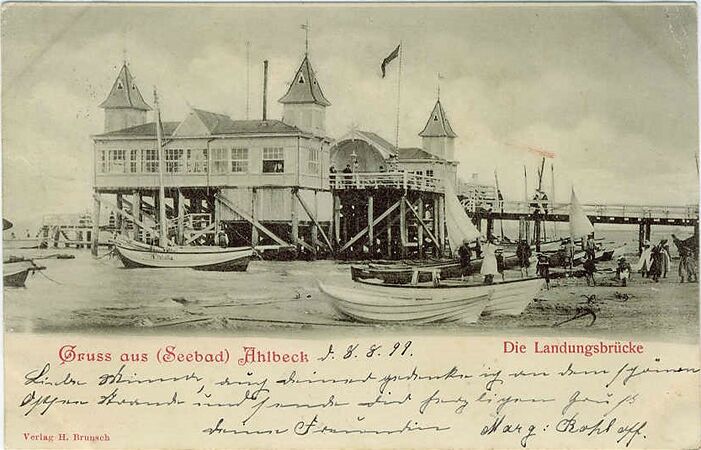 Gruss aus (Seebad) Ahlbeck d. 8. 8. 99.
Die Landungsbrücke
Liebe Minna, auch deiner gedenke ich an dem schönen
Ostsee Strande und sende dir herzligen Gruß
deine Freundin Marg: Kohloff.
Verlag H. Brunsch